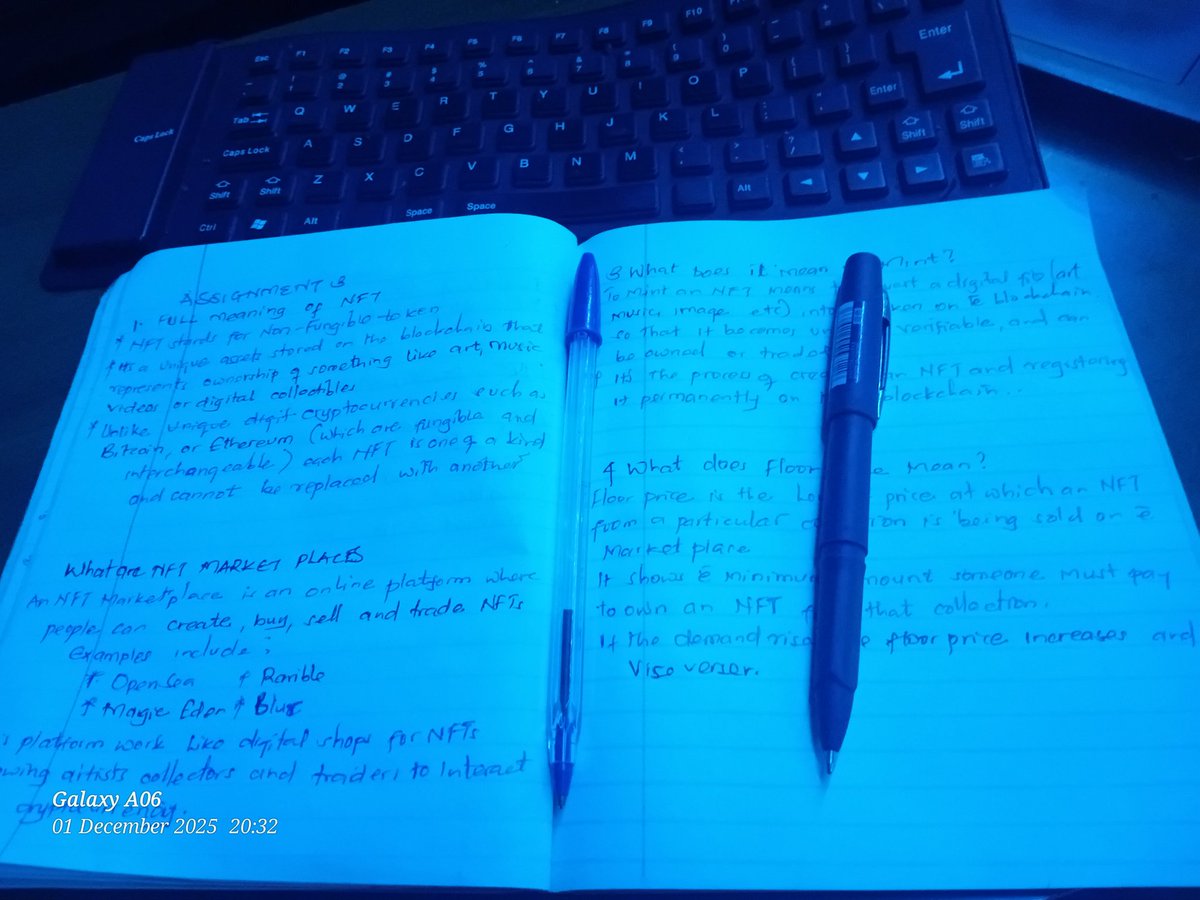 ASSIGNMENT 3
1. FULL meaning of NFT
* NFT stands for Non-fungible-token
* It's a unique assets stored on the blockchain that
represents ownership of something like art, music
videos or digital collectibles
* Unlike unique digit cryptocurrencies such as
Bitcoin, or Ethereum (which are fungible and
interchangeable) each NFT is one of a kind
and cannot be replaced with another
What are NFT MARKET PLACES
An NFT Marketplace is an online platform where
people can create, buy, sell and trade NFTs
Examples include;
* OpenSea * Rarible
* Magic Eden * Blur
platform work like digital shops for NFTs
artists collectors and traders to interact
3 What does it mean Mint?
To mint an NFT means a digital file (art
music, image etc) into on ē blockchain
so that it becomes verifiable, and can
be owned or
It's the process of NFT and registering
it permanently on blockchain...
4 What does Floor Mean?
Floor price is the price at which an NFT
from a particular is being sold on ē
Market place
It shows ē someone must pay
to own an NFT that collection.
If the demand floor price increases and
Viso verser.
Galaxy A06
01 December 2025 20:32
Esc F1 F2 F3 F4 F5 F6 F7 F8 F9 F10
Tab Q W E R T Y U I O P Enter
Caps Lock Caps Lock A S D F G H J K L Enter
Shift Shift Z X C V B N M Shift Shift
Ctrl Alt Space Space Alt